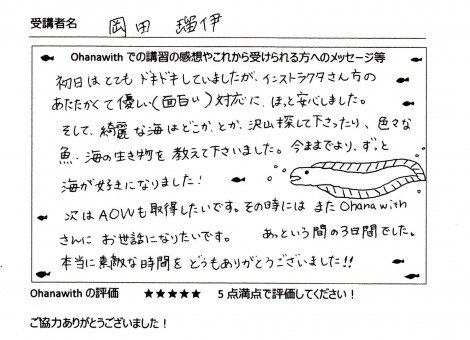 受講者名 岡田 瑠伊
Ohanawith での講習の感想やこれから受けられる方へのメッセージ等
初日はとてもドキドキしていましたが、インストラクタさん方の
あたたかくて優しい(面白い)対応に、ほっと安心しました。
そして、綺麗な海はどこか、とか、沢山探して下さったり、色々な
魚・海の生き物を教えて下さいました。今ままでより、ずっと
海が好きになりました!
次はAOWも取得したいです。その時にはまたOhanawith
さんにお世話になりたいです。 あっという間の3日間でした。
本当に素敵な時間をどうもありがとうございました!!
Ohanawith の評価 ★★★★★ 5点満点で評価してください!
ご協力ありがとうございました!